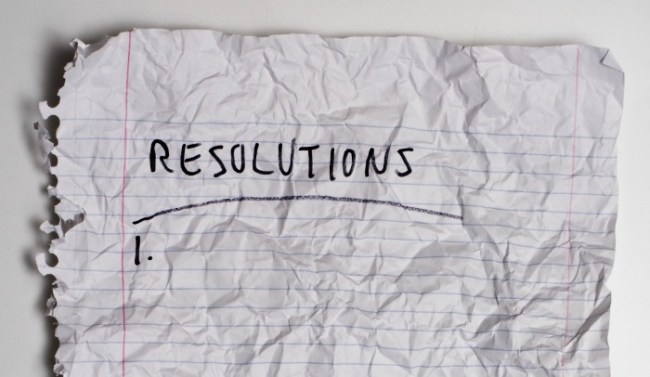 RESOLUTIONS
1.